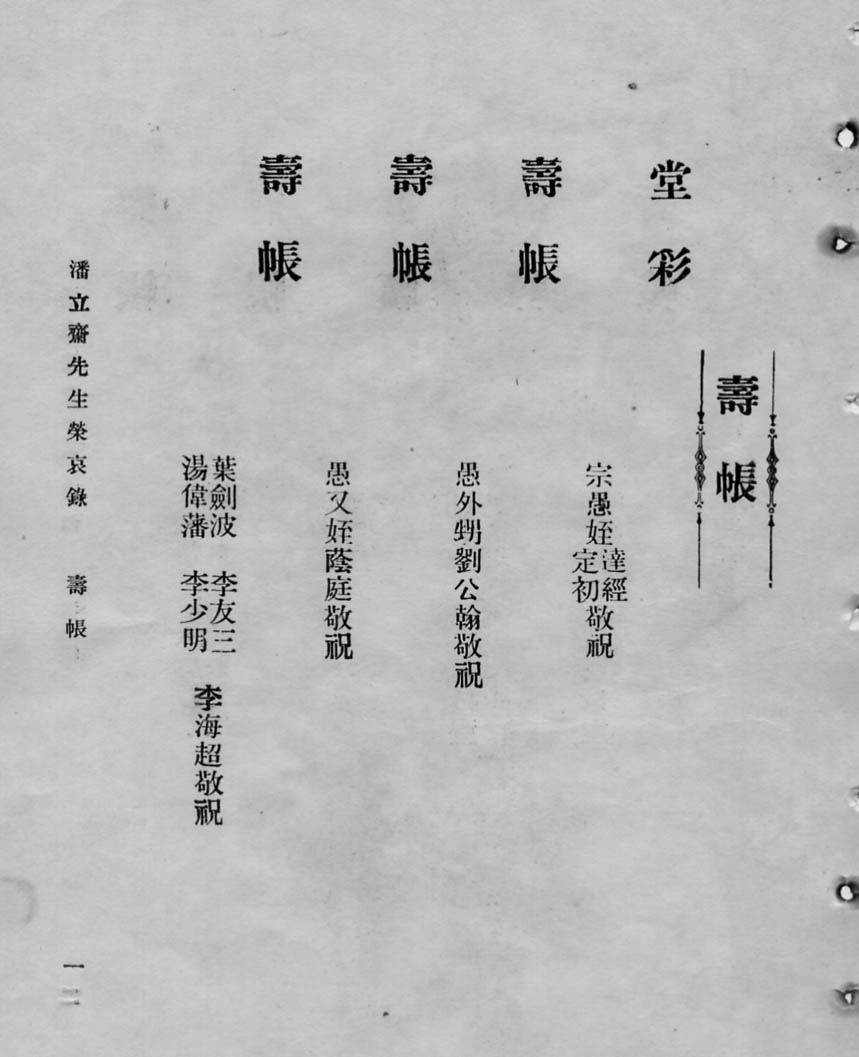 壽帳
堂彩
宗愚姪達經定初敬祝
壽帳
愚外甥劉公翰敬祝
壽帳
愚又姪蔭庭敬祝
壽帳
葉劍波 李友三
湯偉藩 李少明
李海超敬祝
潘立齋先生榮哀錄 壽帳
一二